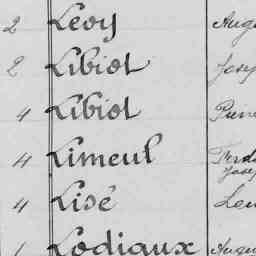 2 Levy Aug
2 Libiot Josep
4 Libiot Pierre
4 Limeul Ferdi
Josep
4 Lisé Leu
1 Lodiaux Augus